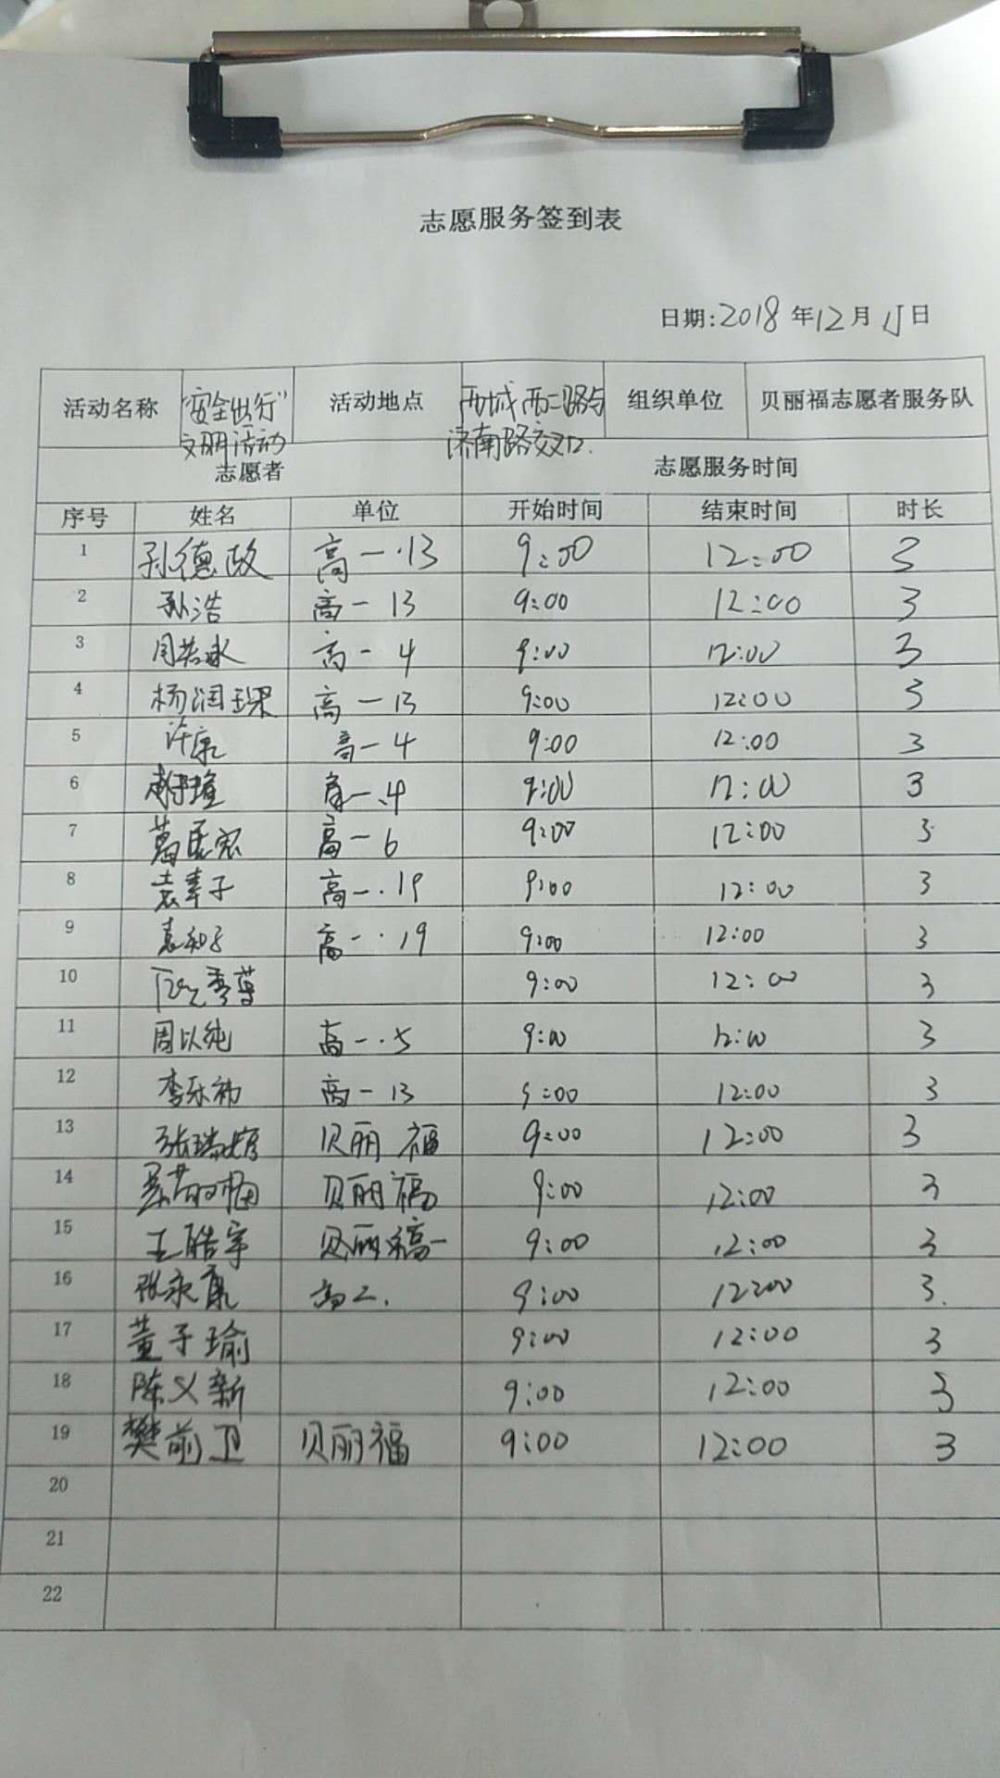 志愿服务签到表
日期:2018年12月15日
活动名称 "安全出行"文明活动 活动地点 西城西二路与济南路交叉口. 组织单位 贝丽福志愿者服务队
志愿者 志愿服务时间
序号 姓名 单位 开始时间 结束时间 时长
1 孙德政 高一·13 9:00 12:00 3
2 孙浩 高一 13 9:00 12:00 3
3 周若冰 高一 4 9:00 12:00 3
4 杨润琛 高一 13 9:00 12:00 3
5 许康 高一 4 9:00 12:00 3
6 高一.4 9:00 12:00 3
7 葛 高一 6 9:00 12:00 3
8 袁幸子 高一·19 9:00 12:00 3
9 袁和子 高一·19 9:00 12:00 3
10 9:00 12:00 3
11 周以纯 高一·5 9:00 12:00 3
12 李乐祎 高一 13 9:00 12:00 3
13 张瑞 贝丽福 9:00 12:00 3
14 贝丽福 9:00 12:00 3
15 王皓宇 贝丽福一 9:00 12:00 3
16 张永康 高二. 9:00 12:00 3.
17 董子瑜 9:00 12:00 3
18 陈义新 9:00 12:00 3
19 樊前卫 贝丽福 9:00 12:00 3
20
21
22